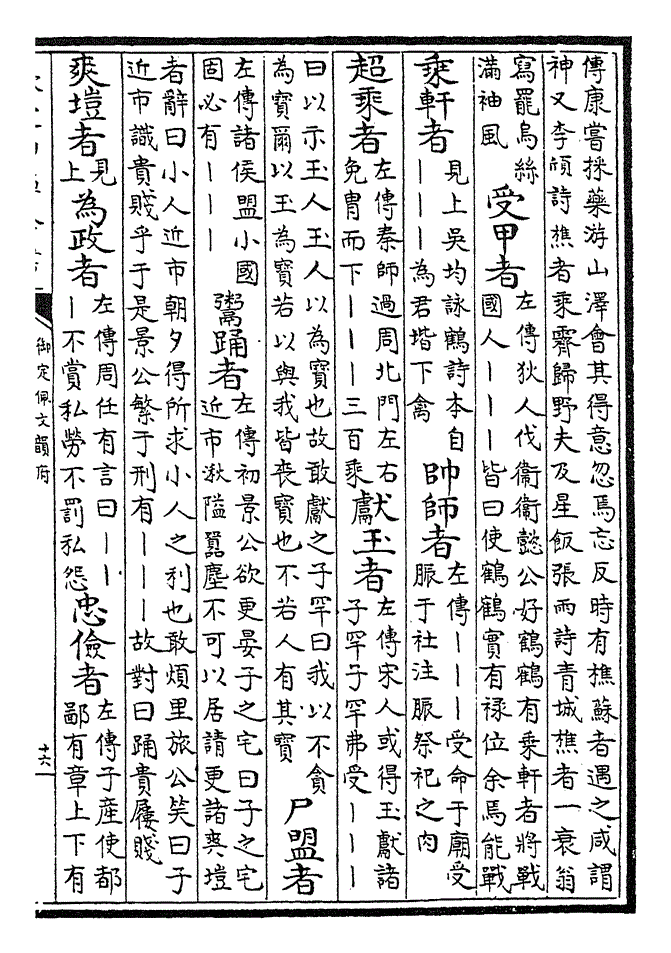 傳康嘗採藥游山澤會其得意忽焉忘反時有樵蘇者遇之咸謂
神又李頎詩樵者乗霽歸野夫及星飯張雨詩青城樵者一衰翁
寫罷烏絲
滿袖風
受甲者
左傳狄人伐衛衛懿公好鶴鶴有乗軒者將戰
國人｜｜｜皆曰使鶴鶴實有禄位余焉能戰
乗軒者
見上吳均詠鶴詩本自
｜｜｜為君堦下禽
帥師者
左傳｜｜｜受命于廟受
脤于社注脤祭祀之肉
超乗者
左傳秦師過周北門左右
免冑而下｜｜｜三百乗
獻玉者
左傳宋人或得玉獻諸
子罕子罕弗受｜｜｜
曰以示玉人玉人以為寶也故敢獻之子罕曰我以不貪
為寶爾以玉為寶若以與我皆喪寶也不若人有其寶
尸盟者
左傳諸侯盟小國
固必有｜｜｜
鬻踊者
左傳初景公欲更晏子之宅曰子之宅
近市湫隘囂塵不可以居請更諸爽塏
者辭曰小人近市朝夕得所求小人之利也敢煩里旅公笑曰子
近市識貴賤乎于是景公繁于刑有｜｜｜故對曰踊貴屨賤
爽塏者
見
上
為政者
左傳周任有言曰｜｜
｜不賞私勞不罰私怨
忠儉者
左傳子產使都
鄙有章上下有
御定佩文韻府
十六